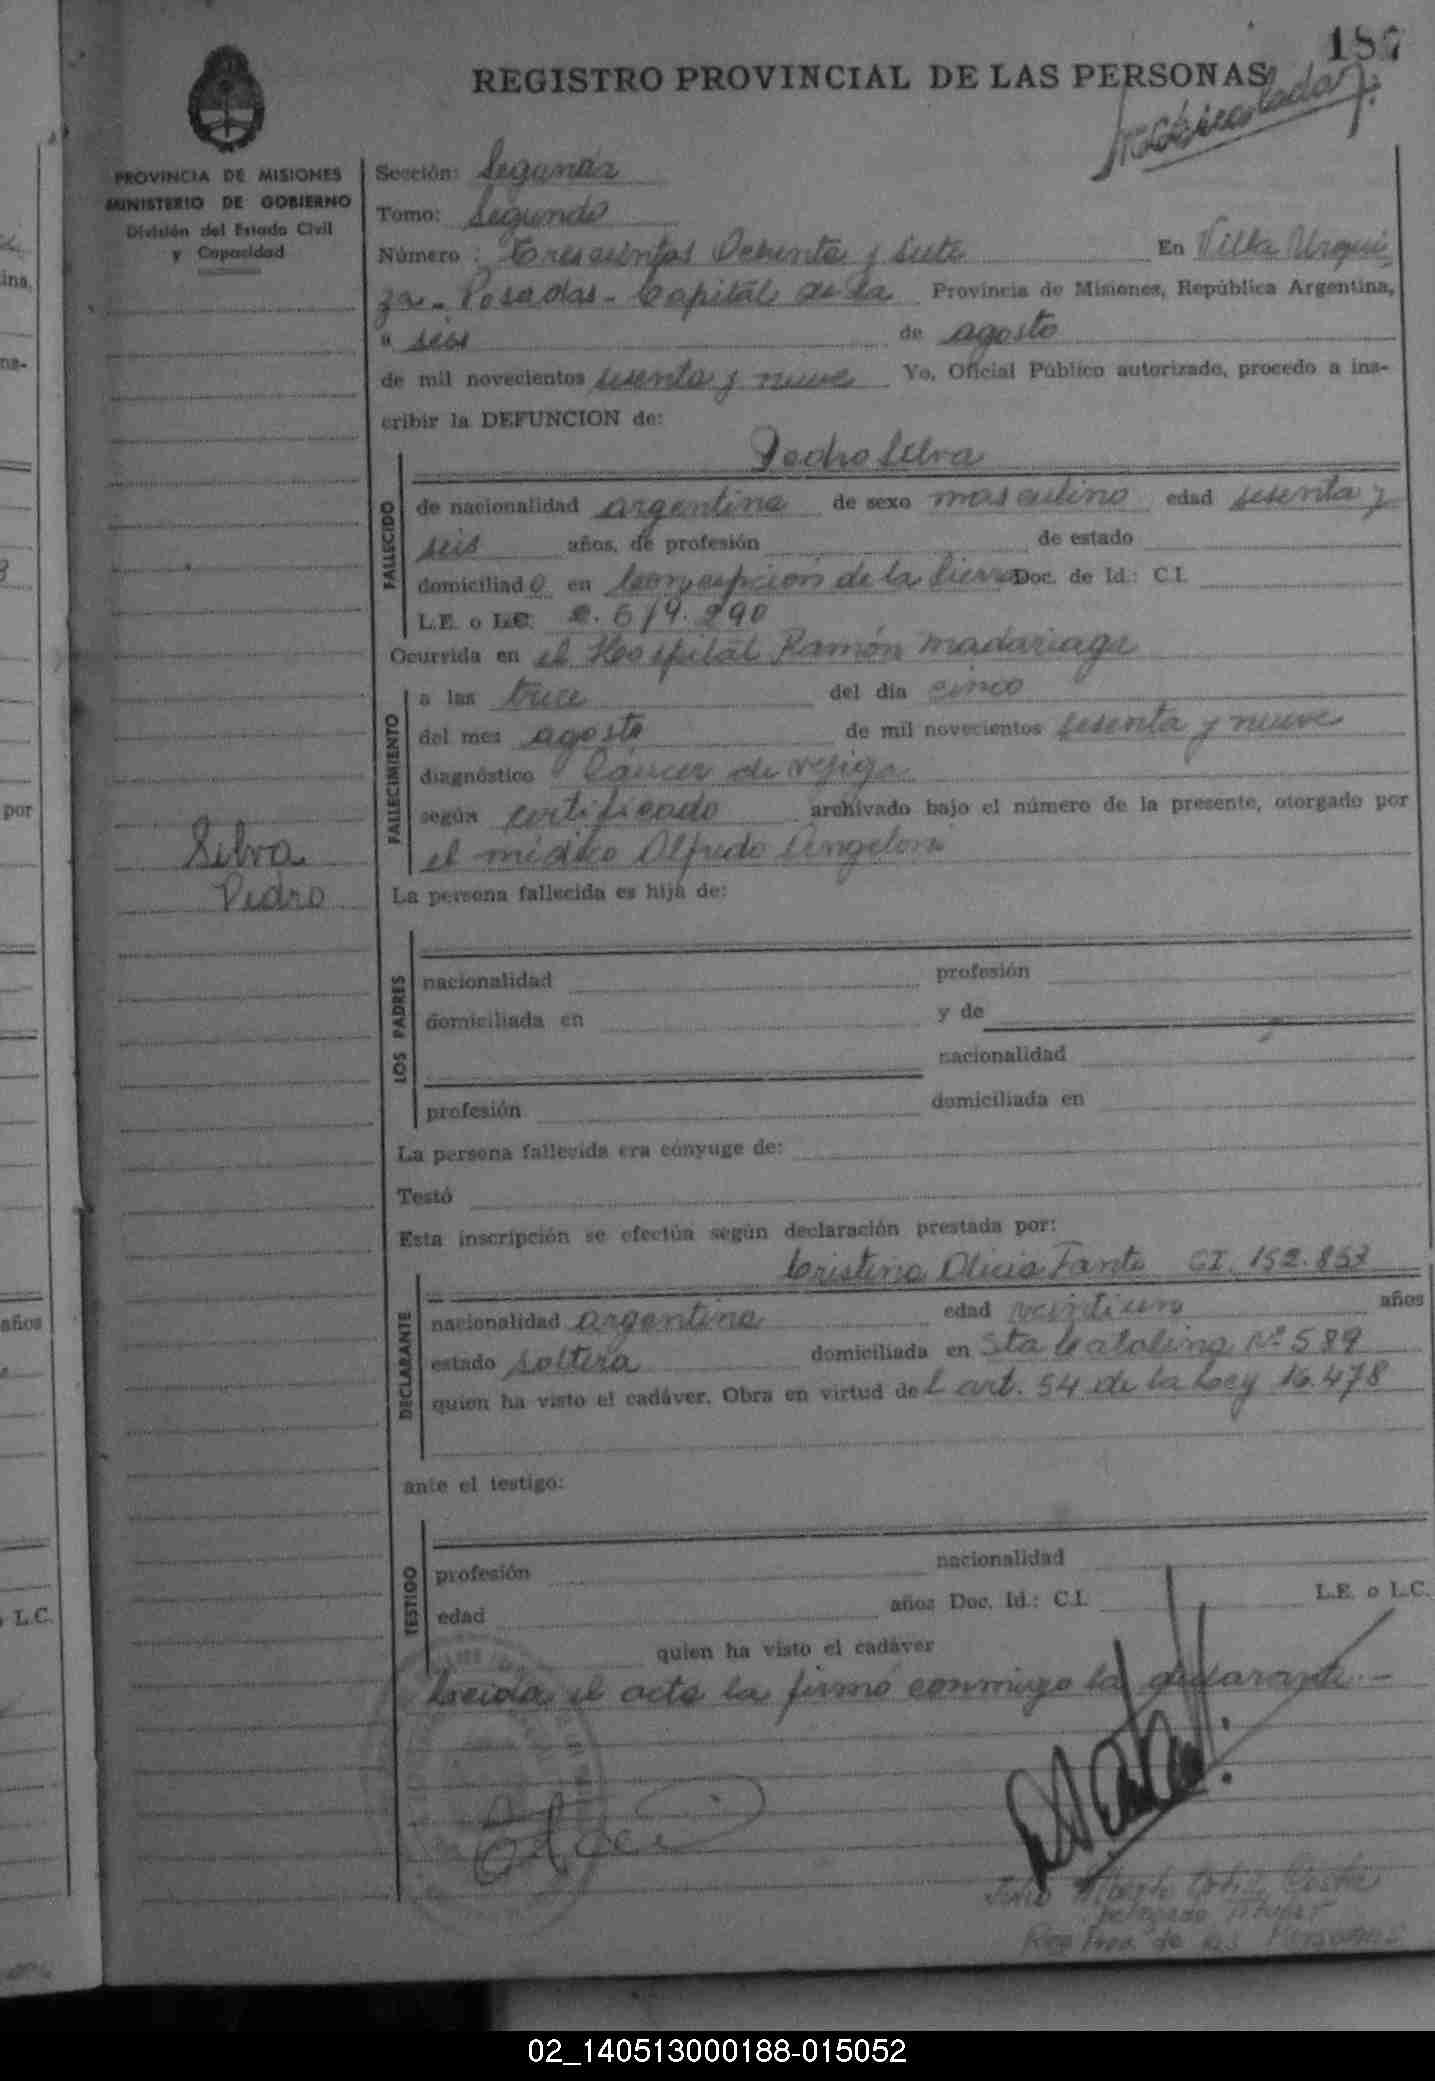 187
REGISTRO PROVINCIAL DE LAS PERSONAS
PROVINCIA DE MISIONES
MINISTERIO DE GOBIERNO
División del Estado Civil
y Capacidad
Sección: Segunda
Tomo: Segundo
Número: Trescientos Ochenta y siete En Villa Urqui
za - Posadas - Capital de la Provincia de Misiones, República Argentina,
a seis de agosto
de mil novecientos sesenta y nueve Yo, Oficial Público autorizado, procedo a ins-
cribir la DEFUNCION de:
Pedro Silva
FALLECIDO
de nacionalidad argentina de sexo masculino edad sesenta y
seis años, de profesión de estado
domiciliado en Concepción de la Sierra Doc. de Id.: C.I.
L.E. o L.C. 2.619.290
Ocurrida en el Hospital Ramón Madariaga
FALLECIMIENTO
a las trece del día cinco
del mes agosto de mil novecientos sesenta y nueve
diagnóstico Cáncer de vejiga
según certificado archivado bajo el número de la presente, otorgado por
el médico Alfredo Angeloni
Silva
Pedro
La persona fallecida es hija de:
LOS PADRES
nacionalidad profesión
domiciliada en y de
nacionalidad
profesión domiciliada en
La persona fallecida era cónyuge de:
Testó
Esta inscripción se efectúa según declaración prestada por:
Cristina Alicia Fante CI. 152.853
DECLARANTE
nacionalidad argentina edad veintiun años
estado soltera domiciliada en Sta Catalina Nº 589
quien ha visto el cadáver. Obra en virtud del art. 54 de la Ley 16.478
ante el testigo:
TESTIGO
profesión nacionalidad
edad años Doc. Id.: C.I. L.E. o L.C.
quien ha visto el cadáver
Leida el acta la firmó conmigo la declarante.-
Alberto Ortiz
Reg Prov. de las Personas
ina,
por
años
L.C.
02_140513000188-015052